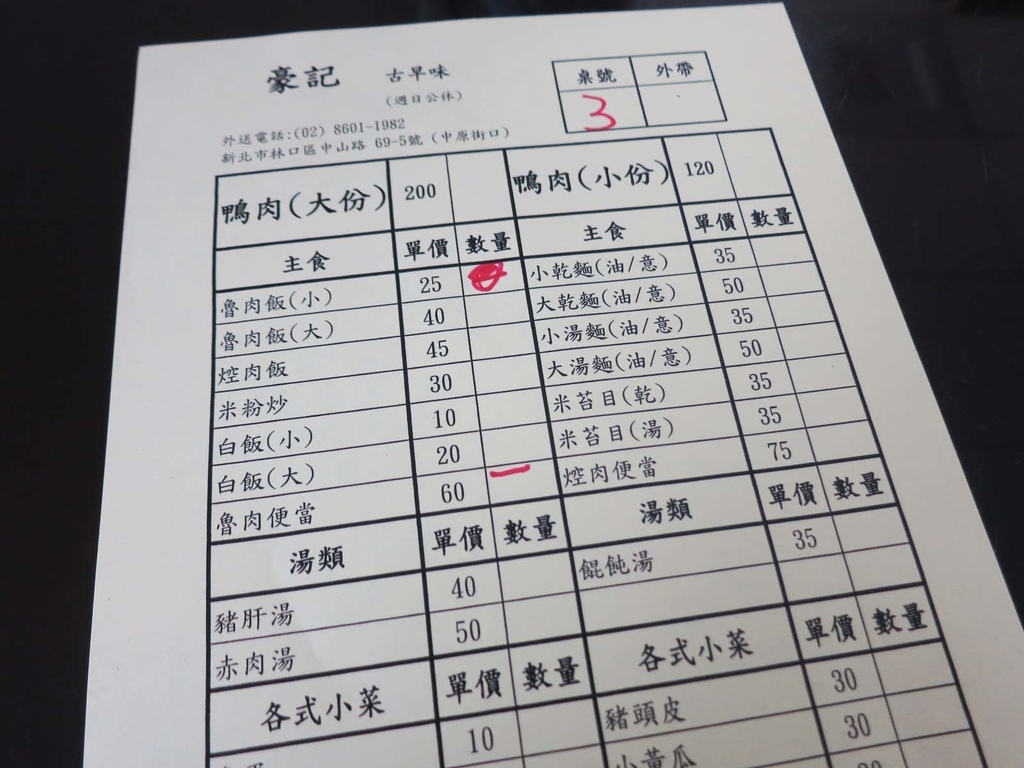 豪記 古早味
(週日公休)
桌號 外帶
3
外送電話:(02) 8601-1982
新北市林口區中山路 69-5號 (中原街口)
鴨肉(大份) 200 鴨肉(小份) 120
主食 單價 數量 主食 單價 數量
魯肉飯(小) 25 小乾麵(油/意) 35
魯肉飯(大) 40 大乾麵(油/意) 50
焢肉飯 45 小湯麵(油/意) 35
米粉炒 30 大湯麵(油/意) 50
白飯(小) 10 米苔目(乾) 35
白飯(大) 20 米苔目(湯) 35
魯肉便當 60 一 焢肉便當 75
湯類 單價 數量 湯類 單價 數量
豬肝湯 40 餛飩湯 35
赤肉湯 50
各式小菜 單價 數量 各式小菜 單價 數量
10 豬頭皮 30
小黃瓜 30